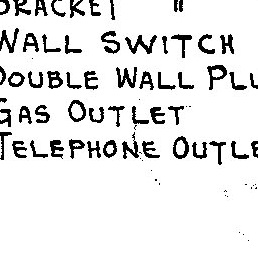 BRACKET "
WALL SWITCH
DOUBLE WALL PLU
GAS OUTLET
TELEPHONE OUTLE